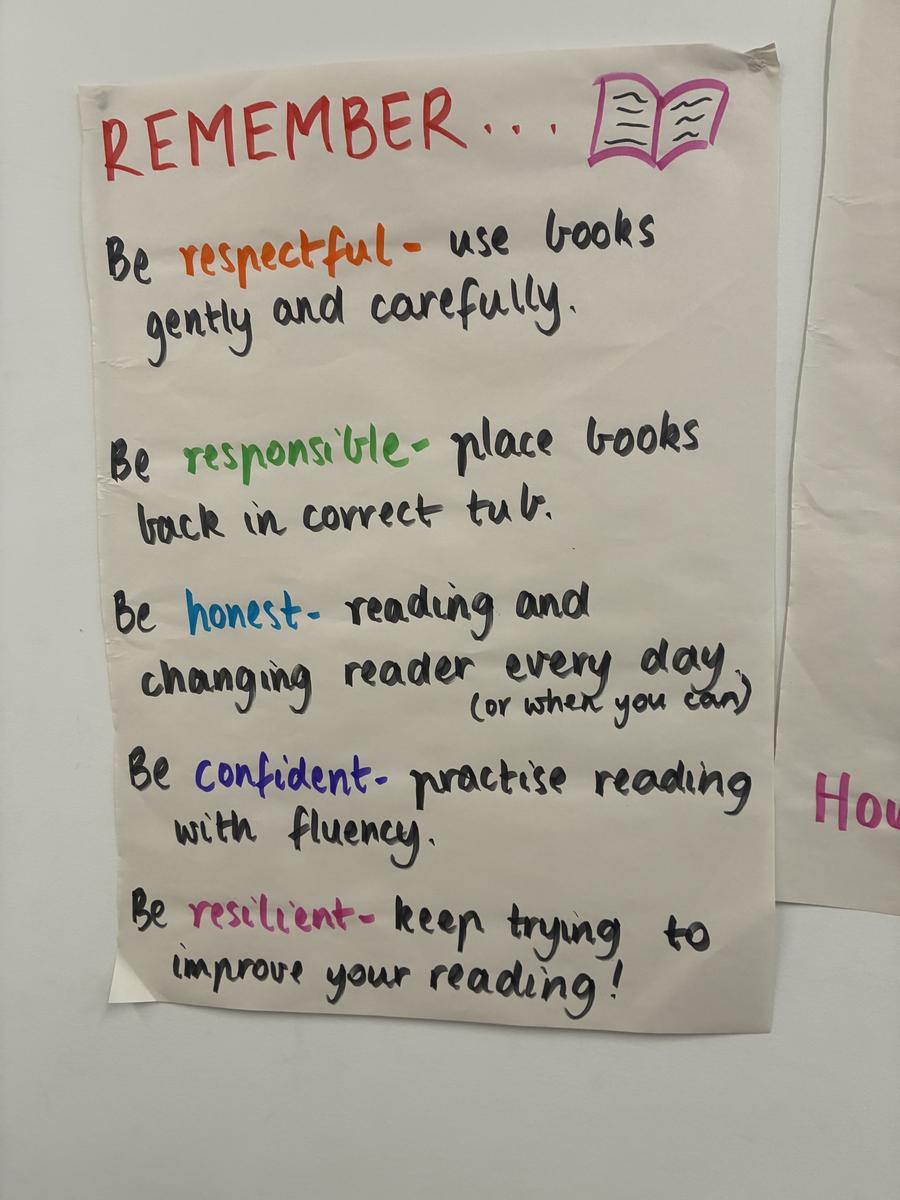 REMEMBER...
Be respectful- use books
gently and carefully.
Be responsible- place books
back in correct tub.
Be honest- reading and
changing reader every day.
(or when you can)
Be confident- practise reading
with fluency.
Be resilient- keep trying to
improve your reading!